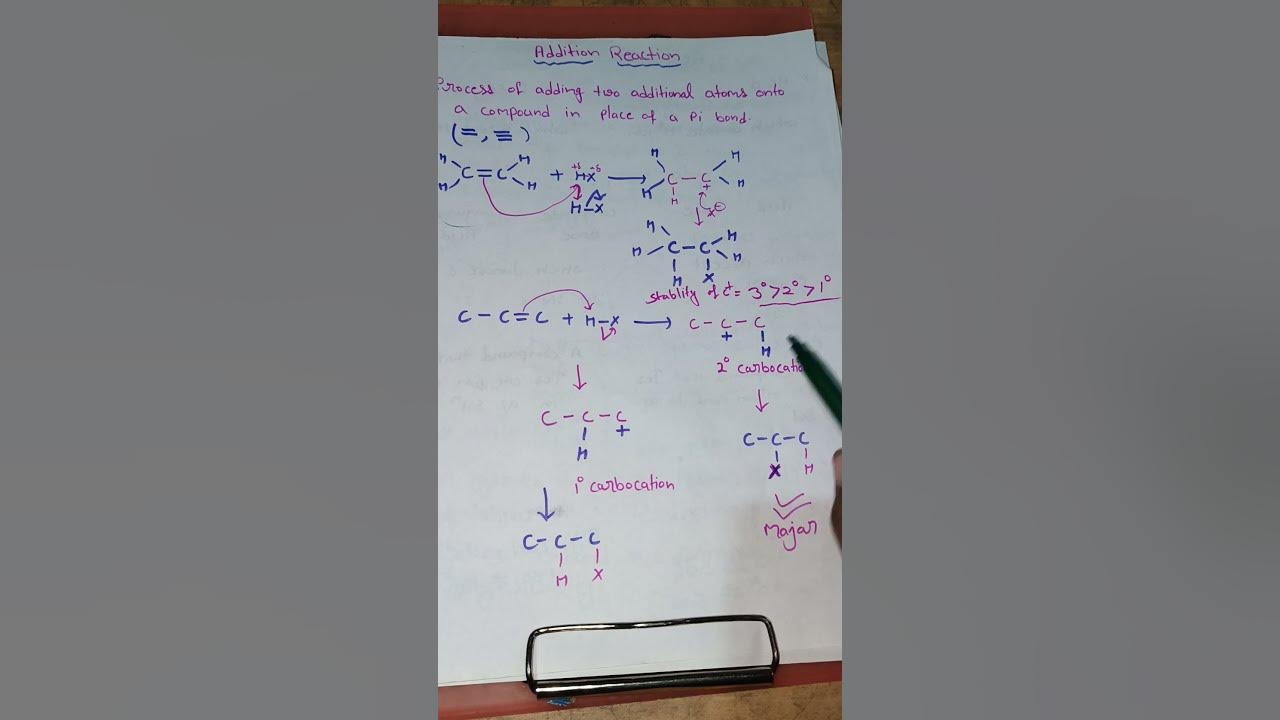 Addition Reaction
Process of adding two additional atoms onto
a compound in place of a Pi bond.
(=, ≡)
H H H H
C=C + HX → C - C
+δ -δ
H H H +
H-X H X⊖
H H
H C - C H
H X
stablity of c⁺= 3°>2°>1°
C - C = C + H-X → C - C - C
+ H
2° carbocatio
C - C - C
H +
C-C-C
X H
1° carbocation
Majar
C- C - C
H X